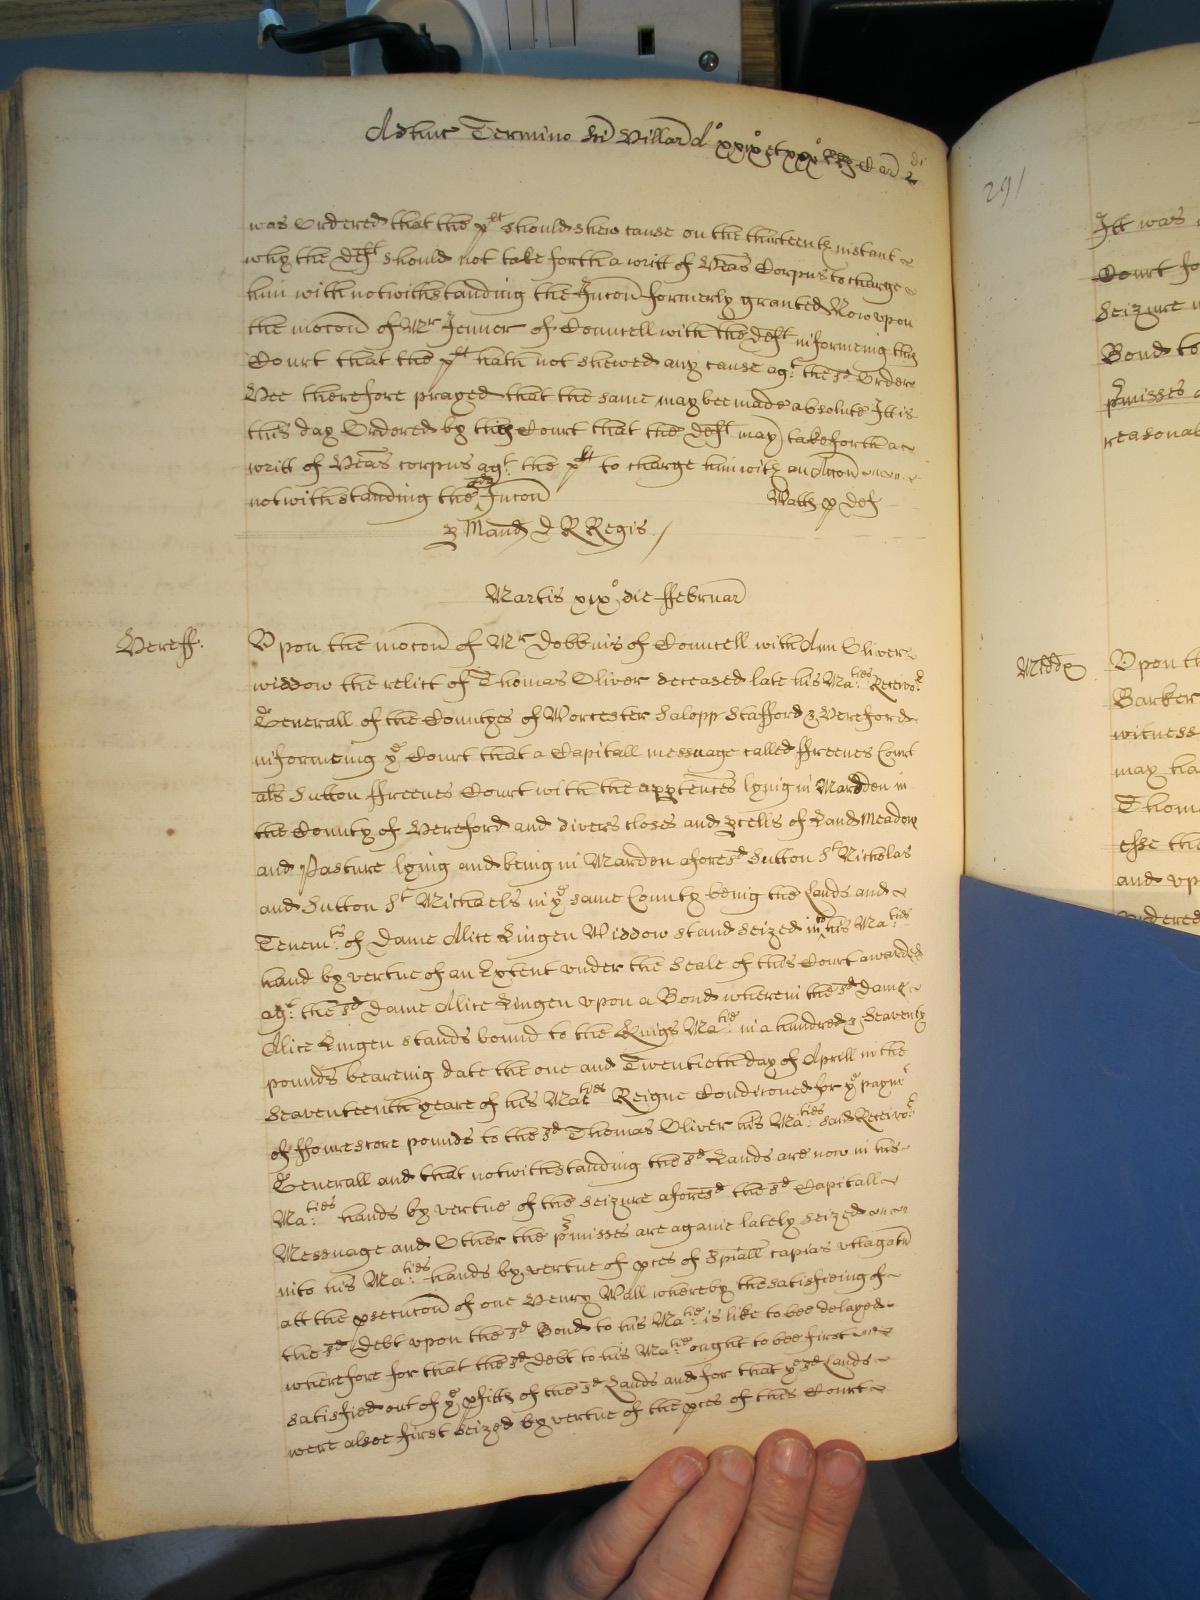 Adhuc Termino Sci Hillar A° xxix° et xxx° RRs Car 2 di
was Ordered that the plt should shew cause on the thirteenth instant
why the Deft should not take forth a writt of Heas Corpus to charge
him with notwithstanding the Incon formerly granted Now upon
the mocon of Mr Jenner of Councell with the Deft informeing this
Court that the plt hath not shewed any cause agt the sd Order
Hee therefore prayed that the same may bee made absolute It is
this day Ordered by this Court that the Deft may take forth a
writt of Heas corpus agt the plt to charge him with an Accon
notwithstanding the sd Incon
Wath p Def
p Mand D R Regis
Martis xix° die ffebruar
Hereff.
Upon the mocon of Mr Dobbins of Councell with Ann Oliver
widdow the relict of Thomas Oliver deceased late his Ma:ties Receivor
Generall of the Countyes of Worcester Salopp Stafford & Hereford
informeing ye Court that a Capitall messuage called ffreenes Court
als Sutton ffreenes Court with the apptences lying in Mardden in
the County of Hereford and divers closes and pcells of Land Meadow
and Pasture lying and being in Marden aforesd Sutton St Nicholas
and Sutton St Michaels in ye same County being the Lands and
Tenemts of Dame Alice Lingen Widdow stand seized into his Ma:ties
hand by vertue of an Extent under the Seale of this Court awarded
agt the sd Dame Alice Lingen upon a Bond wherein the sd Dame
Alice Lingen stands bound to the Kings Ma:tie in a hundred & Seaventy
pounds beareing date the one and Twentieth day of Aprill in the
Seaventeenth yeare of his Maties Reigne Condiconed for ye paymt
of ffourescore pounds to the sd Thomas Oliver his Ma:ties said Receivor
Generall and that notwithstanding the sd Lands are now in his
Ma:ties hands by vertue of the Seizure aforesd the sd Capitall
Messuage and Other the pmisses are againe lately seized
into his Ma:ties hands by vertue of pces of Spiall capias utlagatu
att the psecucon of one Henry Wall whereby the satisfieing of
the sd Debt upon the sd Bond to his Ma:tie is like to bee delayed
wherefore for that the sd debt to his Ma:tie ought to bee first
satisfied out of ye pfitts of the sd Lands and for that ye sd Lands
were alsoe first seized by vertue of the pces of this Court
291
Itt was
Court fo
Seizure
Bond to
pmisses
reasonab
Midds
Upon th
Barker
witness
may ha
Thom
esse the
and up
Ordered